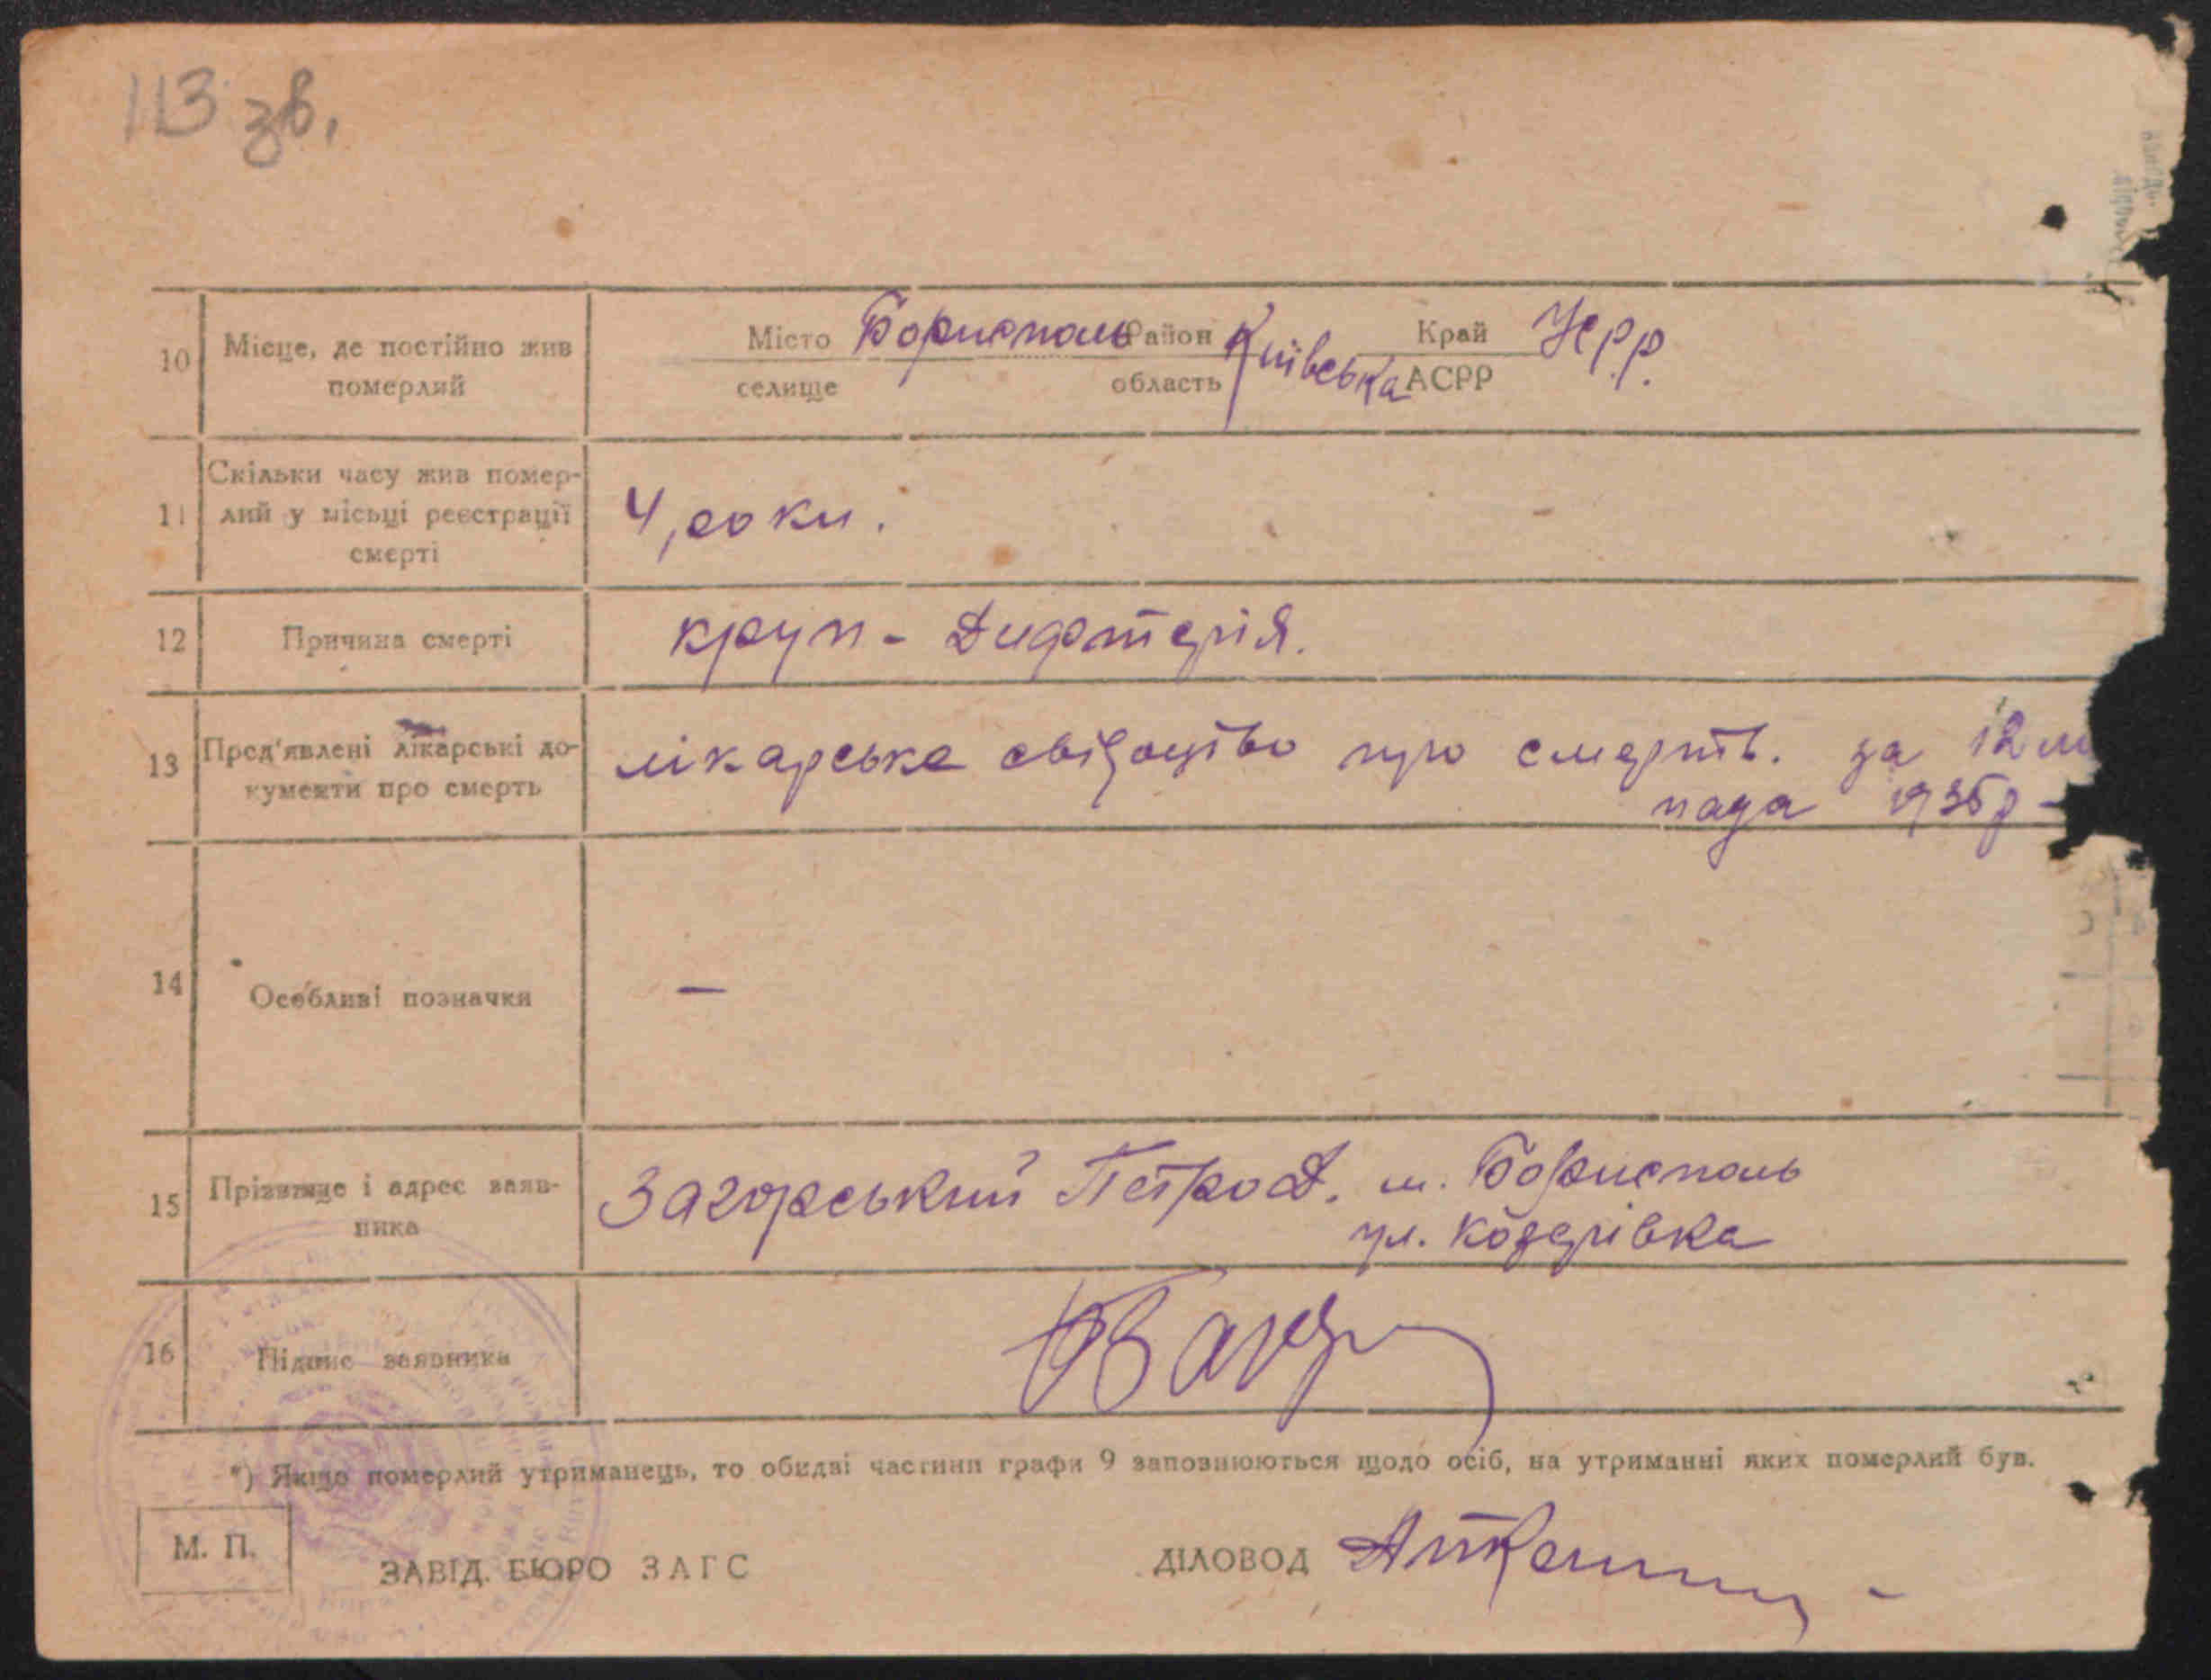 113 зв.
10 Місце, де постійно жив померлий
Місто Бориспаль Район Київська Край УСРР.
селище область АСРР
11 Скільки часу жив помер-
лий у місьці реєстрації
смерті
4, роки.
12 Причина смерті круп - Дифтерія.
13 Пред'явлені лікарські до-
кументи про смерть
лікарське свідоцтво про смерть. за 12 ли
пада 1935р -
14 Особливі позначки —
15 Прізвище і адрес заяв-
ника
Загорський Петро Д. м. Бориспаль
ул. Козерівка
16 Підпис заявника
*) Якщо померлий утриманець, то обидві частини графи 9 заповнюються щодо осіб, на утриманні яких померлий був.
М. П.
ЗАВІД. БЮРО ЗАГС ДІЛОВОД